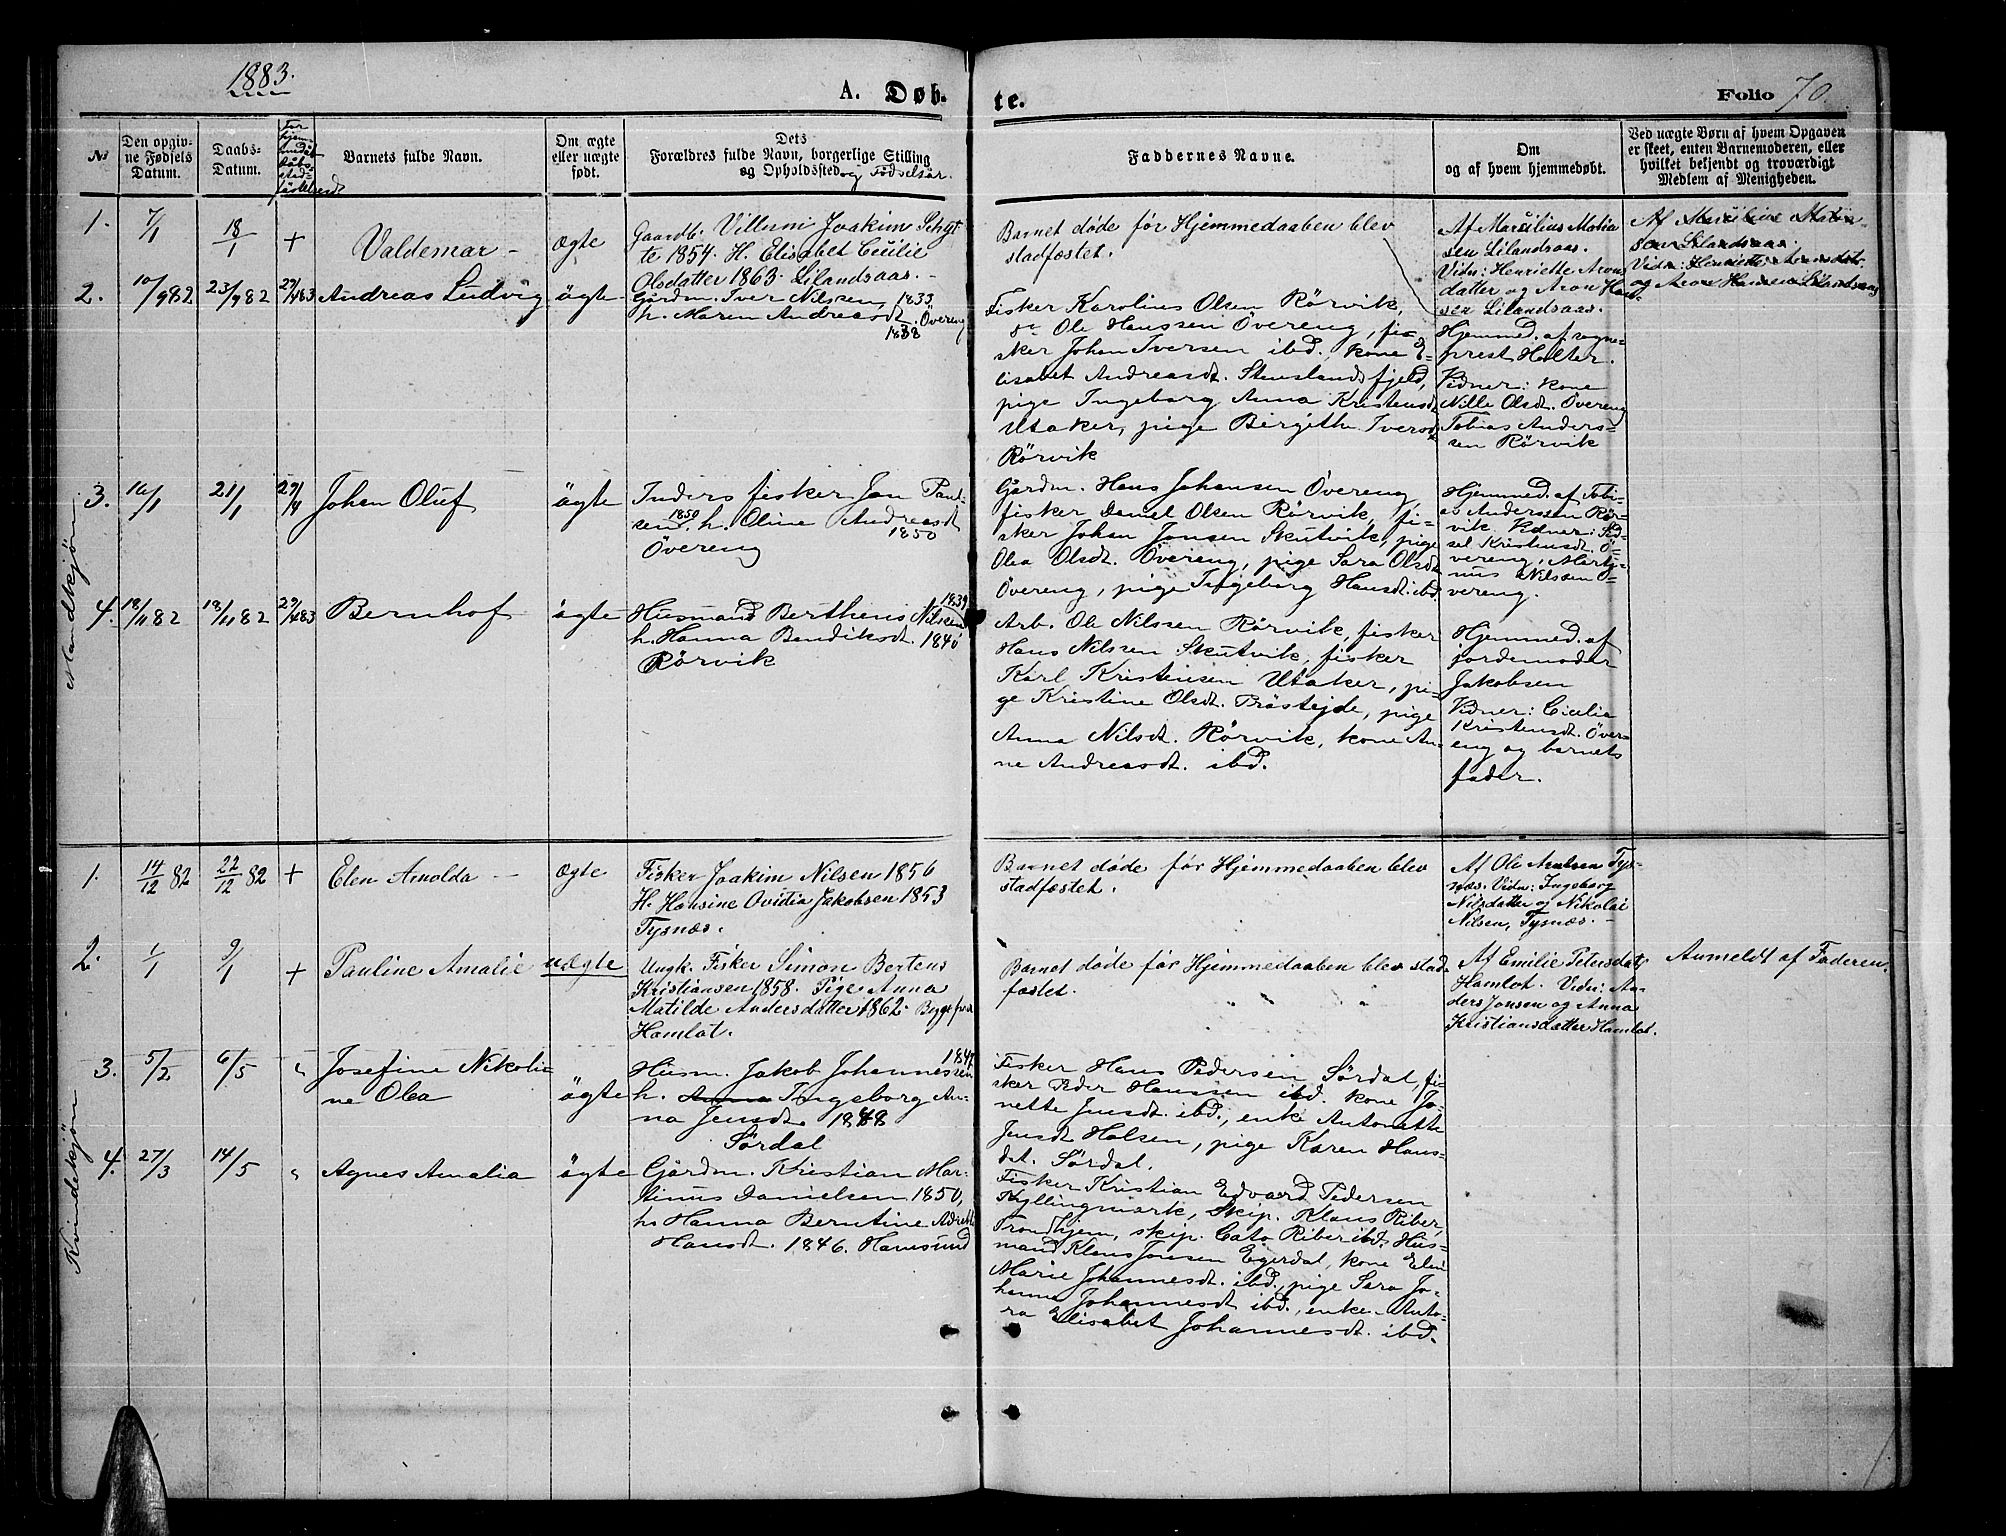 1883.
A. Døb-
te.
Folio 70.
№
Den opgiv-
ne Fødsels
Datum.
Daabs-
Datum.
Barnets fulde Navn.
Om ægte
eller uægte
født.
Dets
Forældres fulde Navn, borgerlige Stilling
og Opholdssted og Födselsår.
Faddernes Navne.
Om
og af hvem hjemmedøbt.
Ved uægte Børn af hvem Opgaven
er skeet, enten Barnemoderen, eller
hvilket bekjendt og troværdigt
Medlem af Menigheden.
Mandkjön
1. 7/1 18/1 + Valdemar - Ægte
Gaardb. Villum Joakim Schyt
te 1854. H. Elisabet Cecilie
Olsdatter 1863. Lilandsaas. -
Barnet døde før Hjemmedaaben blev
stadfæstet.
Af Marsilius Matia
sen Lilandsaas.
Vidn: Henriette Arons
datter og Aron Han-
sen Lilandsaas.
Af Marsilius Matia
sen Lilandsaas.
Vidn: Henriette Aronsdat.
og Aron Hansen Lilandsaas
2. 10/9 82 23/9 82 29/4 83 Andreas Ludvig ägte
Gårdm. Iver Nilsen 1833,
h. Maren Andreasdt. Övereng
1838
Fisker Karolius Olsen Rörvik,
do Ole Hanssen Övereng, fi-
sker Johan Iversen ibd. kone E-
lisabet Andreasdt. Stenslandsfjeld,
pige Ingeborg Anna Kristensdt
Utaker, pige Birgith Iversdt
Rörvik
Hjemmed. af sogne-
prest Holter.
Vidner: kone
Nille Olsdt. Övereng
Tobias Anders-
sen Rörvik
3. 16/1 21/1 29/4 Johan Oluf ägte
Inders fisker Jon Paul-
sen 1850 h. Oline Andreasdt
1850
Övereng
Gårdm. Hans Johansen Övereng,
fisker Daniel Olsen Rörvik, fi-
sker Johan Jonsen Skutvik, pige
Olea Olsdt. Övereng, pige Sara Olsdt
Övereng, pige Ingeborg Hansdt. ibd.
Hjemmed. af Tobi-
as Anderssen Rör-
vik. Vidner: Sid-
sel Kristensdt. Ö-
vereng, Marti-
nus Nilssen Ö-
vereng.
4. 18/11 82 18/11 82 29/4 83 Bernhof ägte
Husmand Berthens Nilssen 1839
h. Hanna Bendiksdt. 1840
Rörvik
Arb. Ole Nilssen Rörvik, fisker
Hans Nilssen Skutvik, fisker
Karl Kristensen Utaker, pi-
ge Kristine Olsdt. Pröstejde, pige
Anna Nilsdt. Rörvik, kone An-
ne Andreasdt. ibd.
Hjemmed. af
jordemoder
Jakobsen
Vidner: Cicilie
Kristensdt. Över-
eng og barnets
fader.
Kvindekjön
1. 14/12 82 22/12 82 + Elen Arnolda - Ægte
Fisker Joakim Nilsen 1856
H. Hansine Ovidia Jakobsen 1853
Tysnæs.
Barnet døde før Hjemmedaaben blev
stadfæstet.
Af Ole Arntsen Tys-
næs. Vidn: Ingeborg
Nilsdatter og Nikolai
Nilsen, Tysnæs. -
2. 1/1 9/1 + Pauline Amalie uægte
Ungk. Fisker Simon Bertens
Kristiansen 1858. Pige Anna
Matilde Andersdatter 1862. Begge fra
Hamlot.
Barnet døde før Hjemmedaaben blev stad
fæstet.
Af Emilie Petersdat.
Hamlot. Vidn: An-
ders Jonsen og Anna
Kristiansdatter Hamlot.
Anmeldt af Faderen.
3. 5/2 6/5 " Josefine Nikoli-
ne Olea ägte
Husm. Jakob Johannessen 1847
h. Anna Ingeborg An-
na Jensdt. 1848
Sördal
Fisker Hans Pedersen Sördal, fi-
sker Peder Hanssen ibd. kone Jo-
nette Jensdt. ibd., enke Antonette
Jensdt Holsen, pige Karen Hans-
dat. Sördal.
4. 27/3 14/5 " Agnes Amalia ägte
Gårdm. Kristian Mar-
tinus Danielsen 1850,
h. Hanna Berntine
Hansdt. 1846. Havesund
Fisker Kristian Edvard Pedersen
Kyllingmark, Skip. Klaus Riber,
Trondhjem, skip. Cato Riber ibd. Hus-
mand Klaus Jonsen Egerdal, kone Elen
Marie Johannesdt. ibd., pige Sara Jo-
hanna Johannesdt ibd., enke Anto-
ra Elisabet Johannesdt. ibd.